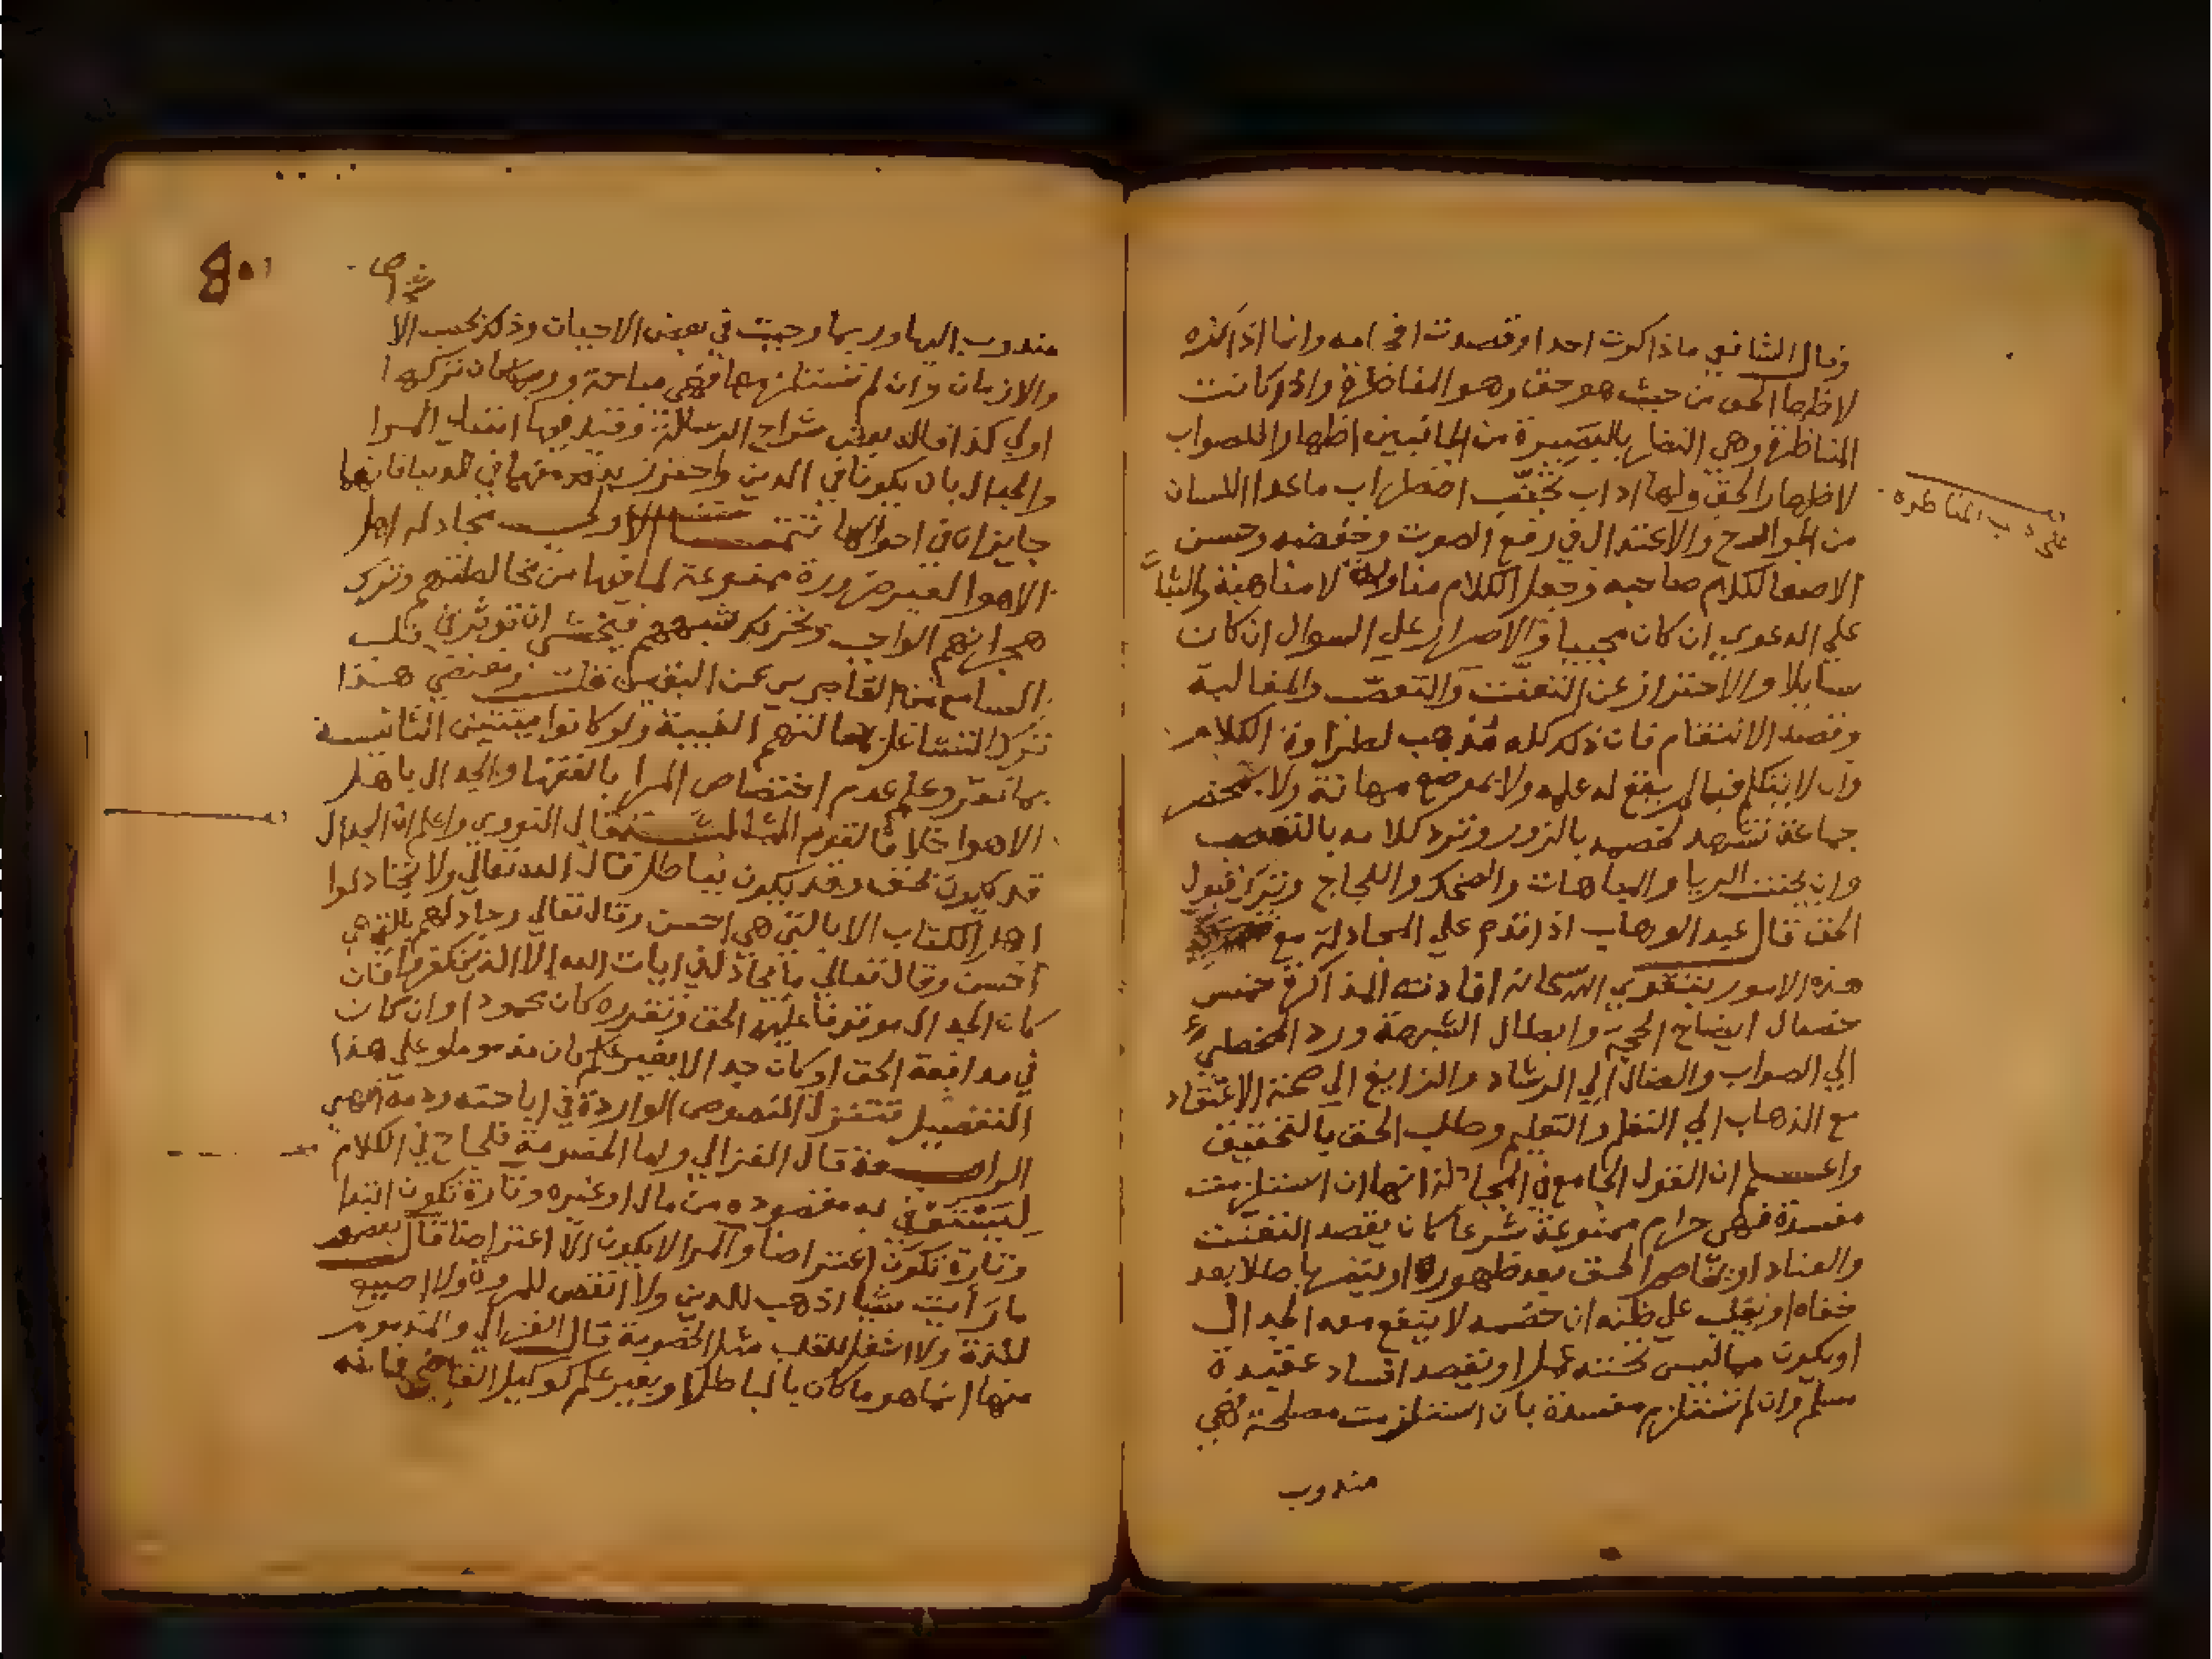 وقال الشافعي ماذاكرت احدا وقصدت افحامه وانما اذاكره
لاظهار الحق من حيث هو حق وهو المناظرة واذا كانت
المناظرة وهي النظر بالبصيرة من الجانبين اظهارا للصواب
لاظهار الحق ولها اداب تجنب اضطراب ماعدا اللسان
من الجوارح والاعتدال في رفع الصوت وخفضه وحسن
الاصغا لكلام صاحبه وجعل الكلام مناوبة لا مناهبة والثبات
علي الدعوي ان كان مجيبا والاصرار علي السوال ان كان
سايلا والاحتراز عن التعنت والتعصب والمغالبة
وقصد الانتقام فان ذلك كله مذهب لطراوة الكلام
وان لا يتكلم فيما لم يقع له علمه ولا بموضع مهانة ولا بمحضر
جماعة تشهد لخصمه بالزور وترد كلامه بالتعصب
وان يجتنب الريا والمباهات والضحك واللجاج وترك قبول
الحق قال عبد الوهاب اذا قدم علي المجادلة مع
هذه الامور بتقوي الله سبحانه افادته المذاكرة خمس
خصال ايضاح الحجة وابطال الشبهة ورد المخطيء
الي الصواب والضال الي الرشاد والزايغ الي صحة الاعتقاد
مع الذهاب الي التعلم والتعليم وطلب الحق بالتحقيق
واعلم ان القول الجامع في المجادلة انها ان استلزمت
مفسدة فهي حرام ممنوعة شرعا كان يقصد التعنت
والعناد او يتقاصر الحق بعد ظهوره او ينصر باطلا بعد
خفاه او يغلب علي ظنه ان خصمه لا ينفع معه الجدال
او يكون مما ليس تحته عمل او يقصد افساد عقيدة
مسلم وان لم تستلزم مفسدة بان استلزمت مصلحة فهي
مندوب
اداب المناظره
مندوب اليها وربما وجبت في بعض الاحيان وذلك بحسب الا
والازمان وان لم تستلزمهما فهي مباحة وربما كان تركها
اولي كذا قاله بعض شراح الرسالة وقيد فيها انتفاء المرا
والجدال بان يكونا في الدين واحترز به عنهما في الدنيا فانهما
جايزان في احوالها تتمات الاولي مجادلة اهل
الاهوا لغير ضرورة ممنوعة لما فيها من مخالطتهم وترك
هجرانهم الواجب وتحريك شبههم فيخشي ان توثر في قلب
السامع من القاصرين عن النفوس قلت ومقتضي هذا
ترك التشاغل بمقالتهم الغيبة ولو كانوا ميتين الثانية
بما تقرر علم عدم اختصاص المرا بالفقها والجدال باهل
الاهوا خلافا لقوم الثالثة قال النووي واعلم ان الجدال
قد يكون بحق وقد يكون بباطل قال الله تعالي ولا تجادلوا
اهل الكتاب الا بالتي هي احسن وقال تعالي وجادلهم بالتي هي
احسن وقال تعالي ما يجادل في ايات الله الا الذين كفروا فان
كان الجدال موقوفا علي الحق وتقريره كان محمودا وان كان
في مدافعة الحق او كان جدالا بغير علم كان مذموما وعلي هذا
التفصيل تتنزل النصوص الواردة في اباحته وذمه انتهي
الرابعة قال الغزالي واما الخصومة فلجاج في الكلام
ليستوفي به مقصوده من مال او غيره وتارة تكون ابتدا
وتارة تكون اعتراضا والمرا لا يكون الا اعتراضا قال بعضهم
ما رأيت شيا اذهب للدين ولا انقص للمروة ولا اضيع
للذة ولا اشغل للقلب مثل الخصومة قال الغزالي والمذموم
منها انما هو ما كان بالباطل او بغير علم كوكيل القاضي فانه